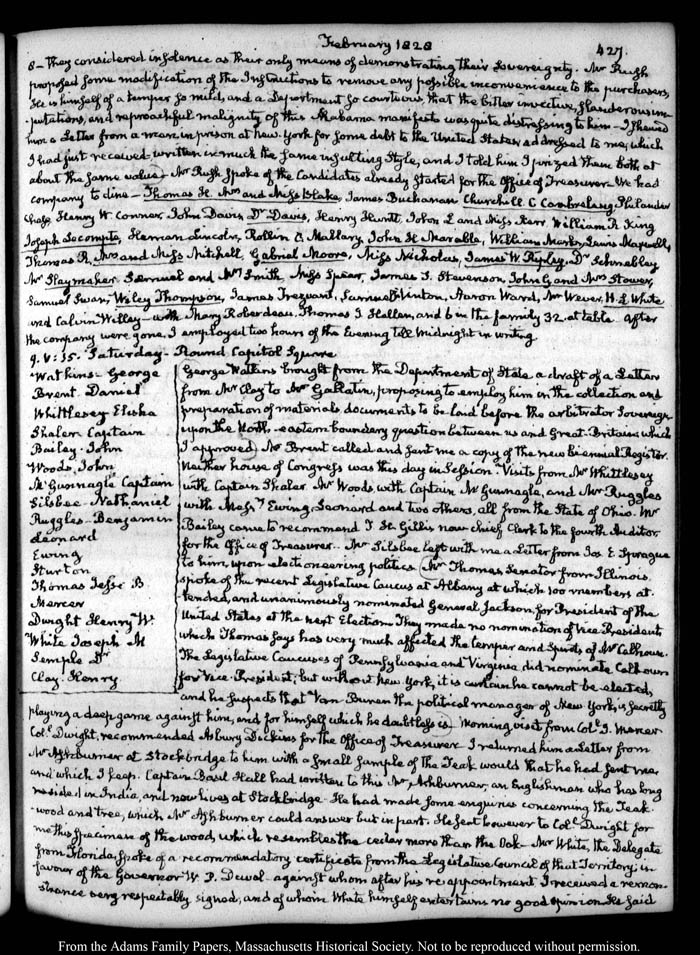 February 1828
427.
8 – they considered insolence as their only means of demonstrating their Sovereignty. Mr Rush
proposed some modification of the Instructions to remove any possible inconvenience to the purchasers,
He is himself of a temper so mild, and a Department so courteous that the bitter invective, slanderous im-
-putations, and reproachful malignity of this Alabama manifesto was quite distressing to him – I shewed
him a Letter from a man in prison at New-York for some debt to the United States, addressed to me, which
I had just received, written in much the same insulting style, and I told him I prized them both at
about the same value – Mr Rush spoke of the Candidates already started for the Office of Treasurer. We had
company to dine – Thomas H. Mrs and Miss Blake, James Buchanan Churchill C Cambreleng, Philander
Chase, Henry W. Conner, John Davis, Dr Davis, Henry Huntt, John L and Miss Kerr, William R King
Joseph Lecompte, Heman Lincoln, Rollin C. Mallary, John H. Marable, William Marks, Lewis Maxwell,
Thomas R. Mrs and Miss Mitchell, Gabriel Moore, Miss Nicholas, James W. Ripley, Dr Schnebley
Mr Slaymaker, Samuel and Wm Smith, Miss Spear, James S. Stevenson, John G. and Mrs Stower,
Samuel Swan, Wiley Thompson, James Trezvant, Samuel F Vinton, Aaron Ward, Mr Wever, H. L. White
and Calvin Willey – with Mary Roberdeau, Thomas J. Hellen, and 6 in the family 32 at table. After
the company were gone I employed two hours of the Evening till Midnight in writing
9. V:15. Saturday – Round Capitol Square
Watkins George
Brent Daniel
Whittlesey Elisha
Shaler Captain
Bailey. John
Woods, John
Mc Gunnagle Captain
Silsbee Nathaniel
Ruggles – Benjamin
Leonard
Ewing
Sturton
Thomas Jesse B
Mercer
Dwight Henry W.
White Joseph M
Semple Dr
Clay. Henry
George Watkins brought from the Department of State a draft of a Letter
from Mr Clay to Mr Gallatin, proposing to employ him in the collection and
preparation of materials documents to be laid before the arbitrator Sovereign
upon the North-eastern boundary question between us and Great-Britain which
I approved. Mr Brent called and sent me a copy of the new biennial Register.
Neither house of Congress was this day in Session. Visits from Mr Whittlesey
with Captain Shaler Mr Woods, with Captain Mc Gunnagle, and Mr Ruggles
with Messrs Ewing, Leonard and two others, all from the State of Ohio. Mr
Bailey came to recommend T. St. Gillis now chief Clerk to the fourth Auditor,
for the Office of Treasurer. Mr Silsbee left with me a Letter from Jos. E Sprague
to him, upon electioneering politics. Mr Thomas, Senator from Illinois,
spoke of the recent Legislative Caucus at Albany at which 100 members at-
tended, and unanimously nominated General Jackson, for President of the
United States at the next Election. They made no nomination of Vice-President
which Thomas says has very much affected the temper and spirits of Mr Calhoun.
The Legislative Caucuses of Pennsylvania and Virginia did nominate Calhoun
for Vice-President; but without New York, it is certain he cannot be elected,
and he suspects that Van Buren the political manager of New York, is secretly
playing a deep game against him, and for himself which he doubtless is. Morning visit from Col. I. Mercer
Col. Dwight, recommended Asbury Dickins for the Office of Treasurer. I returned him a Letter from
Mr Ashburner at Stockbridge to him with a small sample of the Teak wood that he had sent me
and which I keep. Captain Basil Hall had written to this Mr Ashburner, an Englishman who has long
resided in India, and now lives at Stockbridge. He had made some enquiries concerning the Teak-
-wood and tree, which Mr Ashburner could answer but in part. He sent however to Col. Dwight for
me this specimen of the wood, which resembles the cedar more than the Oak – Mr White, the Delegate
from Florida, spoke of a recommendatory certificate from the Legislative Council of that Territory in
favour of the Governor W. P. Duval – against whom after his re-appointment I received a remon-
strance very respectably signed, and of whom White himself entertains no good opinion. He said
From the Adams Family Papers, Massachusetts Historical Society. Not to be reproduced without permission.